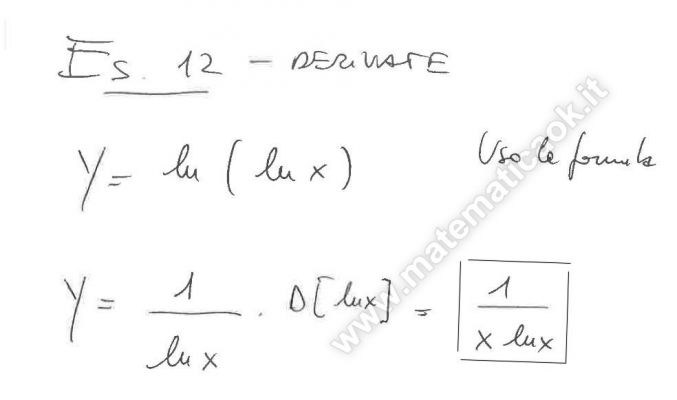 Es. 12 - DERIVATE
y = ln (ln x) Uso la formula
y = 1/ln x · D[ln x] = 1/x ln x
www.matematicaok.it